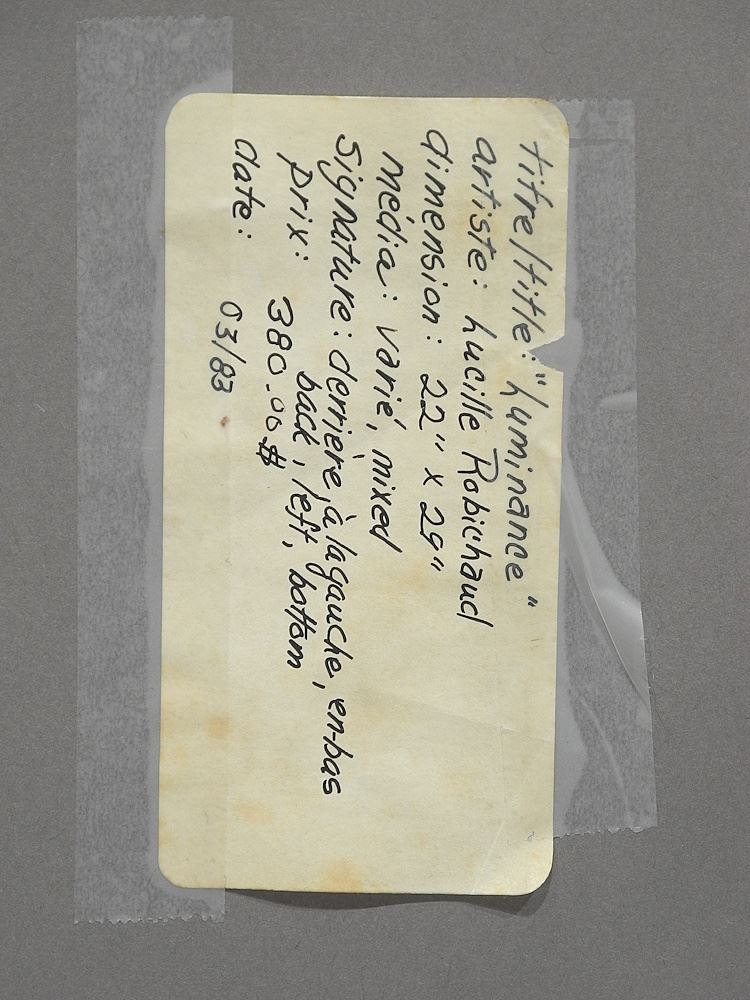 titre/title: "Luminance"
artiste: Lucille Robichaud
dimension: 22" x 29"
média: varié, mixed
signature: derrière, à la gauche, en-bas
back, left, bottom
prix: 380.00 $
date: 03/83